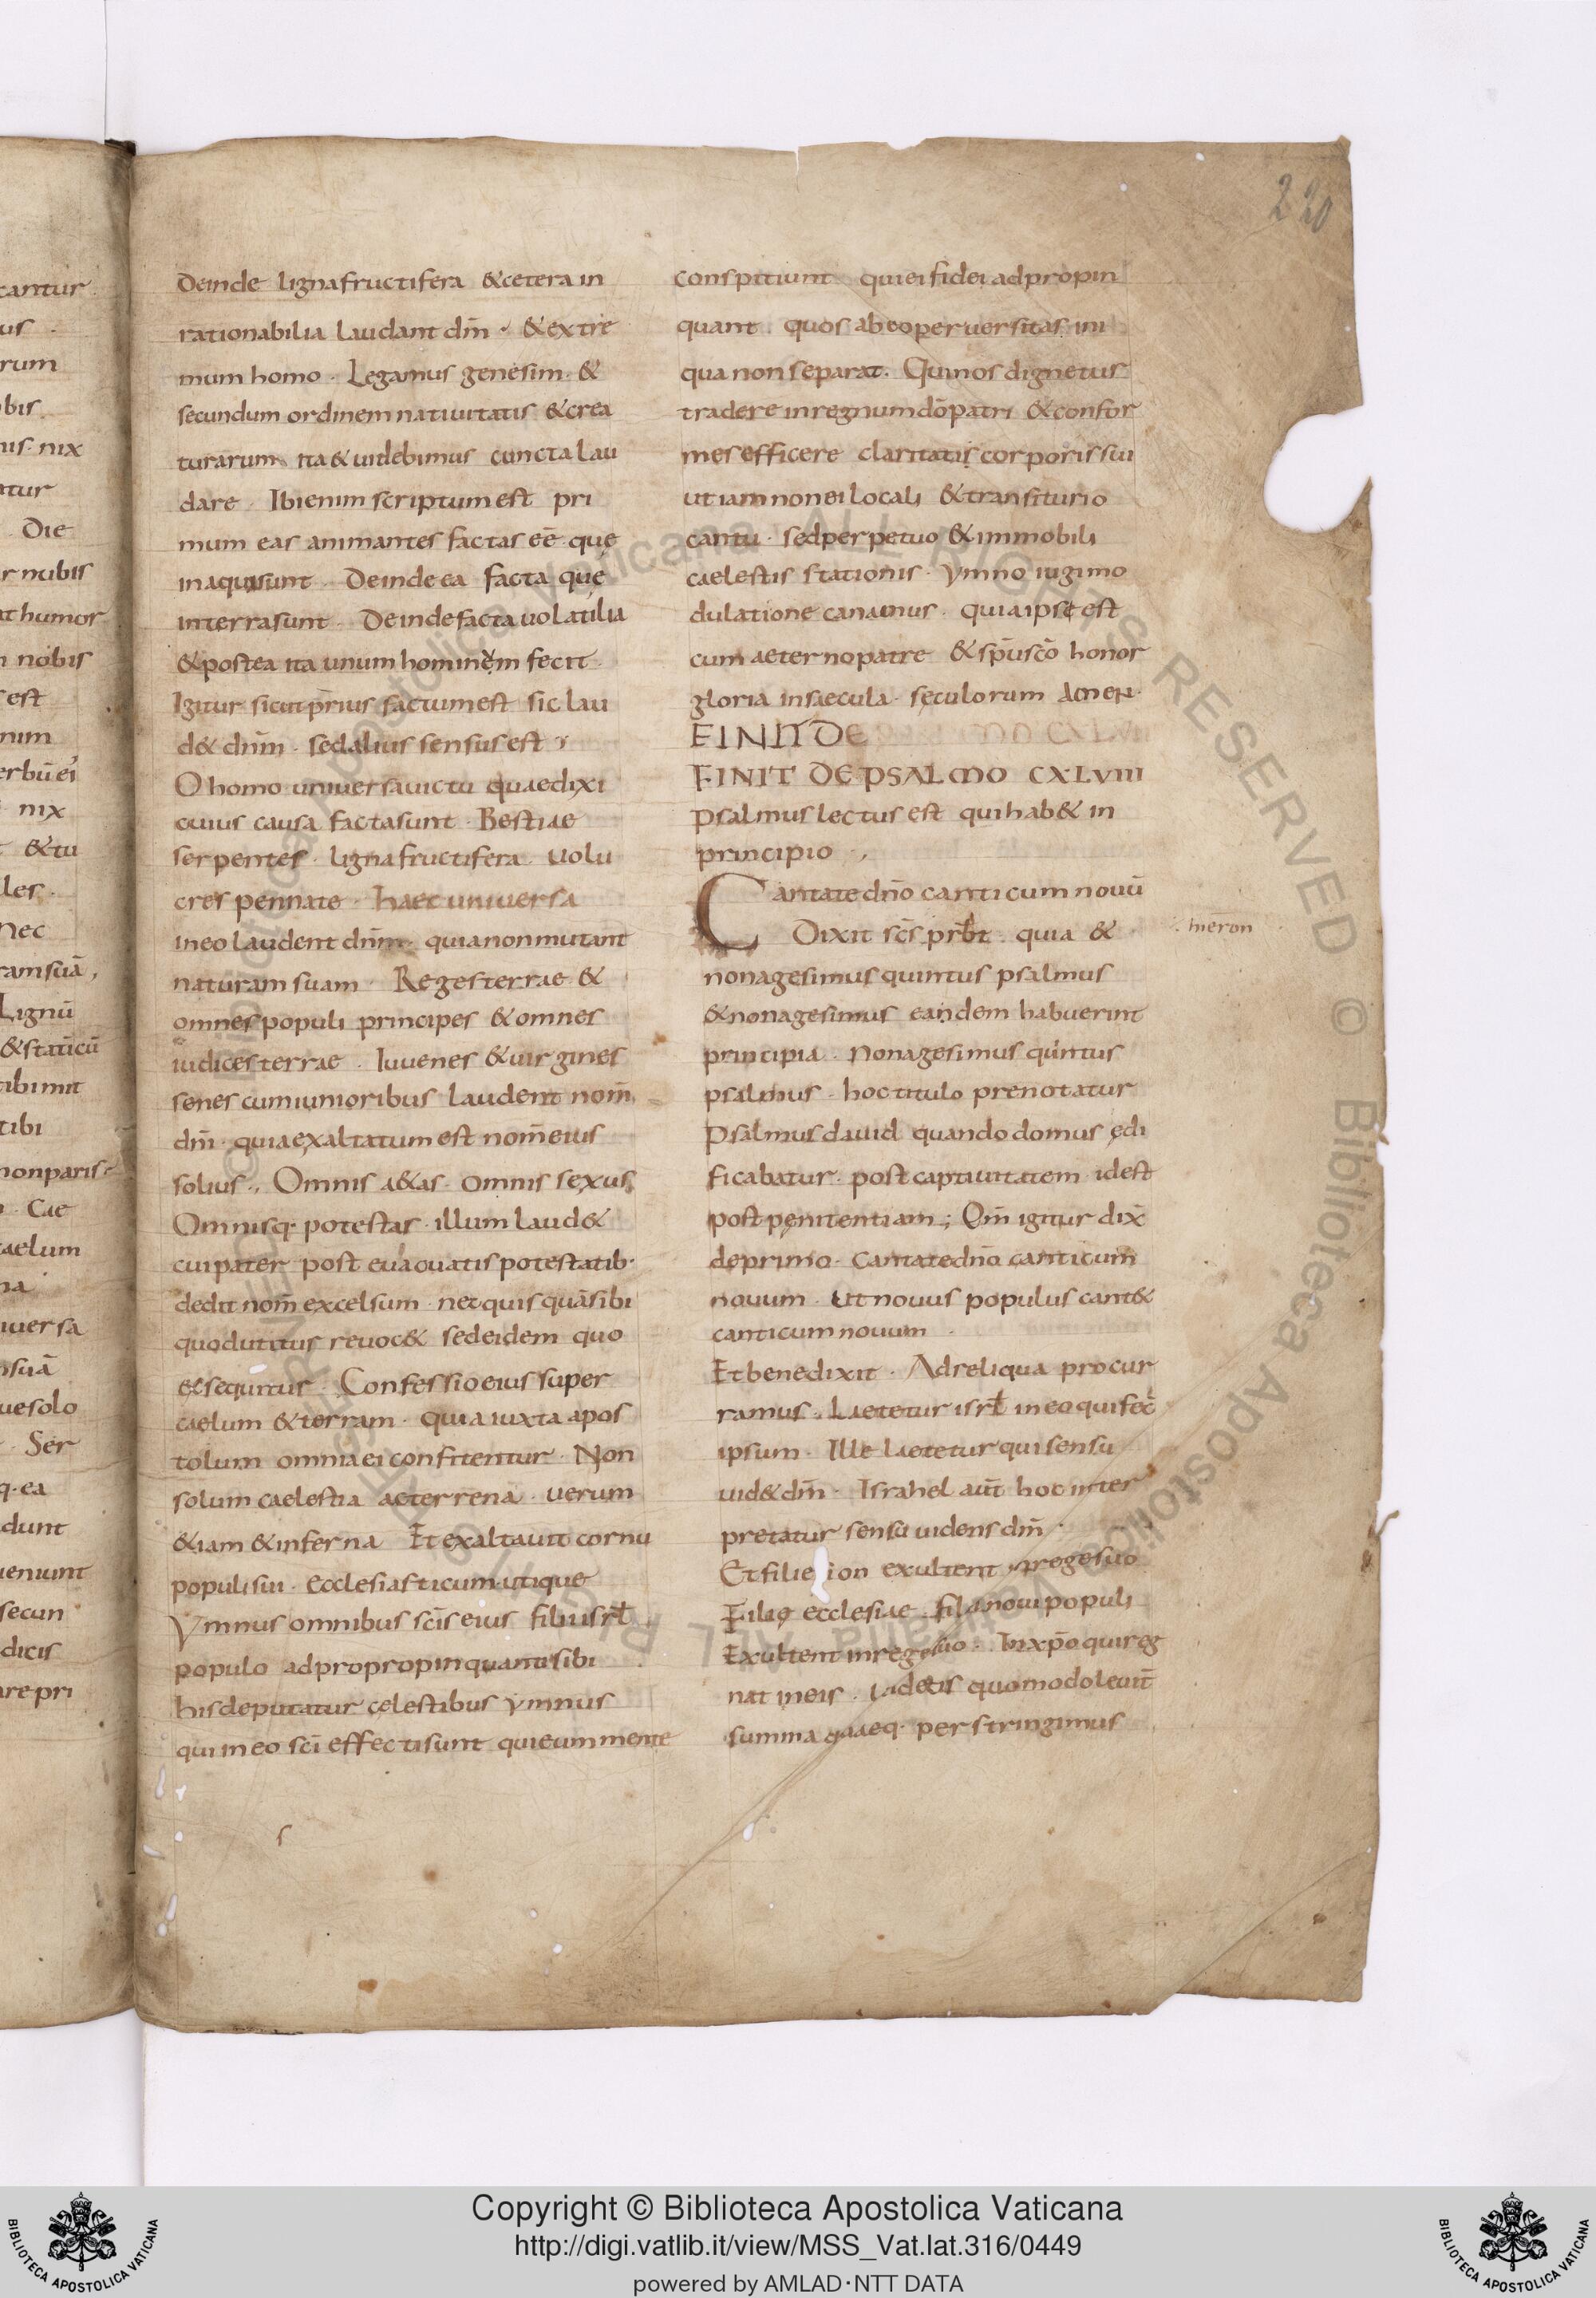 220
cantur
us
rum
bis
us. nix
atur
Die
r nubis
at humor
n nobis
est
nim
erbū ei
nix
& tu
les.
Nec
ram suā,
Lignū
& staticū
tibi mit
tibi
non paris
Cae
caelum
na
iuersa
suā
ue solo
Ser
q. ea
dunt
ueniunt
secun
dicis
are pri
Deinde ligna fructifera & cetera in
rationabilia laudant dn̄m · & extre
mum homo · Legamus genesim · &
secundum ordinem natiuitatis & crea
turarum ita & uidebimus cuncta lau
dare · Ibi enim scriptum est pri
mum eas animantes factas eē quę
in aquis sunt · Deinde ea facta quę
in terra sunt · Deinde facta uolatilia
& postea ita unum hominem fecit
Igitur sicut prius factum est sic lau
d& dnm̄ · sed alius sensus est ·
O homo uniuersa uictu quae dixi
cuius causa facta sunt · Bestiae
serpentes · ligna fructifera uolu
cres pennate · haec uniuersa
in eo laudent dnm̄ · quia non mutant
naturam suam · Reges terrae &
omnes populi principes & omnes
iudices terrae · Iuuenes & uirgines
senes cum iunioribus laudent nom̄
dn̄i · quia exaltatum est nom̄ eius
solius ·, Omnis a&as · omnis sexus
Omnisq· potestas · illum laud&
cui pater post euacuatis potestatib·
dedit nom̄ excelsum · nec quisquā sibi
quod utitur reuoc& sed eidem quo
& sequitur · Confessio eius super
caelum & terram · quia iuxta apos
tolum omnia ei confitentur · Non
solum caelestia ac terrena · uerum
&iam & inferna Et exaltauit cornu
populi sui · ecclesiasticum utique
ymnus omnibus scīs eius filii isrł
populo ad propropinquanti sibi
his deputatur cęlestibus ymnus
qui in eo scī effecti sunt qui eum mente
conspitiunt qui ei fidei adpropin
quant · quos ab eo peruersitas ini
qua non separat · Qui nos dignetur
tradere in regnum dō patri & confor
mes efficere claritatis corporis sui
ut iam non ei locali & transiturio
cantu · sed perpetuo & immobili
caelestis stationis · ymno iugi mo
dulatione canamus · quia ipse est
cum aeterno patre & sp̄u scō honor
gloria in saecula · sęculorum amen·
FINIT DE
FINIT DE PSALMO CXLVIII
Psalmus lectus est qui hab& in
principio ·,
Cantate dn̄o canticum nouū
Dixit scs̄ prb̄t · quia &
nonagesimus quintus psalmus
& nonagesimus eandem habuerint
principia · Nonagesimus quintus
psalmus · hoc titulo prenotatur
Psalmus dauid quando domus ędi
ficabatur · post captiuitatem · id est
post penitentiam ; Qm̄ igitur dix̄
de primo · Cantate dn̄o canticum
nouum · Ut nouus populus cant&
canticum nouum ·
Et benedixit · Ad reliqua procur
ramus · Laetetur isrł in eo qui fec̄
ipsum · Ille laetetur qui sensu
uid& dm̄ · Israhel aūt hoc inter
pretatur sensu uidens dm̄ ·
Et filie sion exultent
Filię ecclesiae filię noui populi
Exultent in rege suo · In xp̄o qui reg
nat in eis · uidetis quomodo leuit̄
summa quaeq· perstringimus
hieron
Copyright © Biblioteca Apostolica Vaticana
http://digi.vatlib.it/view/MSS_Vat.lat.316/0449
powered by AMLAD·NTT DATA
BIBLIOTECA APOSTOLICA VATICANA
BIBLIOTECA APOSTOLICA VATICANA